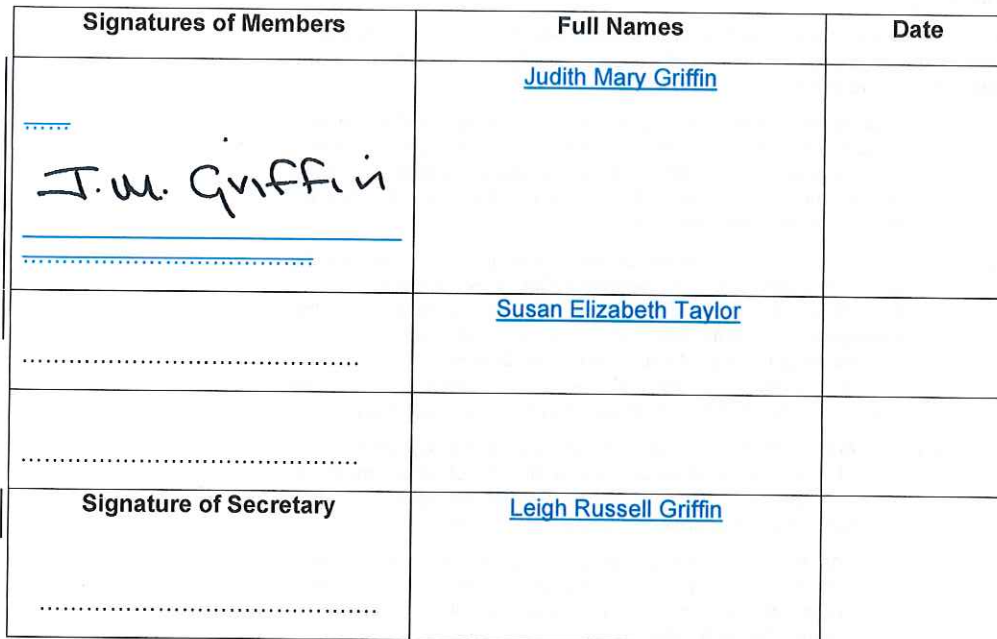 Signatures of Members Full Names Date
Judith Mary Griffin
J.M. Griffin
Susan Elizabeth Taylor
Signature of Secretary Leigh Russell Griffin